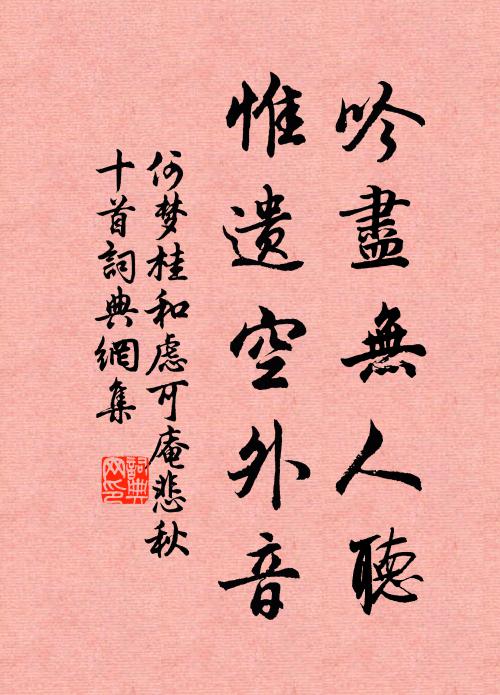 吟盡無人聽
惟遺空外音
何梦桂和虑可庵悲秋
十首詞典網集
詞典网印